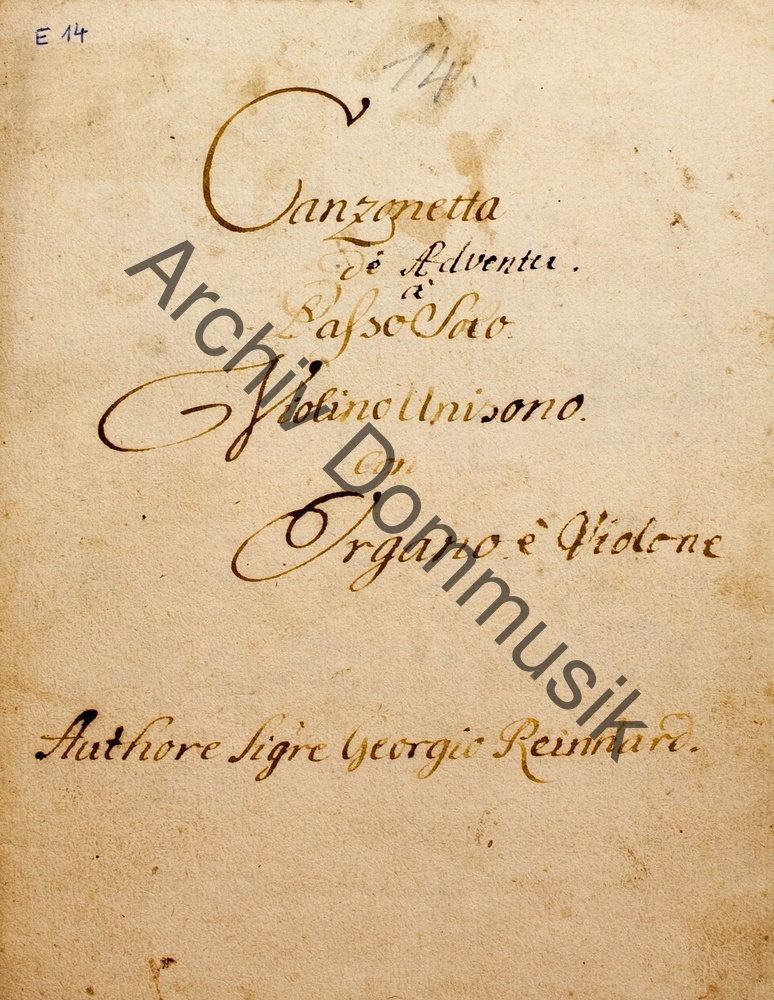 E 14
14.
Canzonetta
dè Adventu.
à
Basso Solo.
Violino Unisono.
con
Organo è Violone
Authore Sigre Georgio Reinhard.
Archiv Dommusik